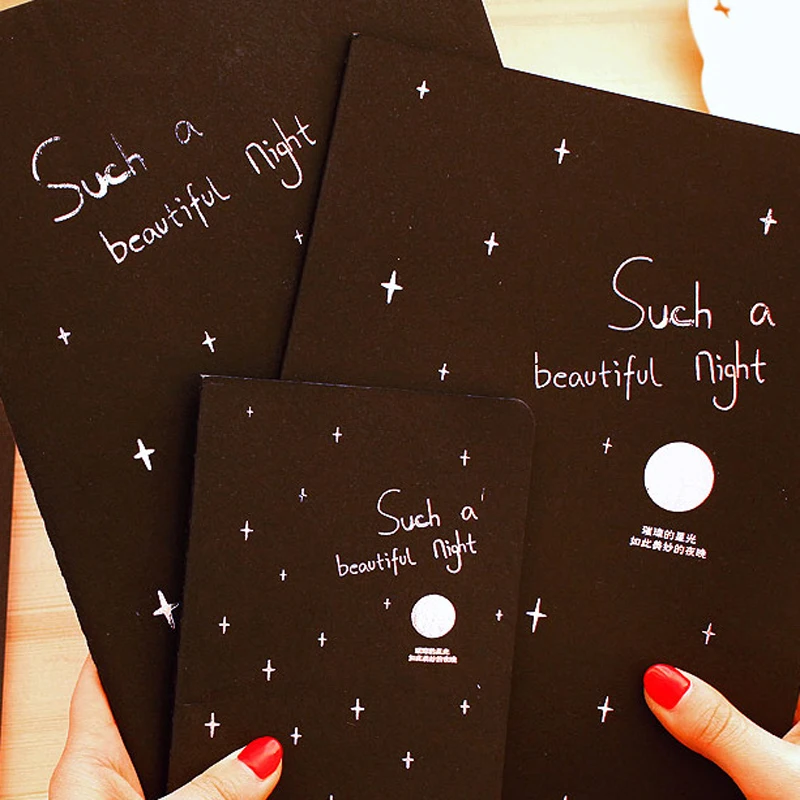 Such a
beautiful Night
Such a
beautiful Night
璀璨的星光
如此美妙的夜晚
Such a
beautiful Night
璀璨的星光
如此美妙的夜晚